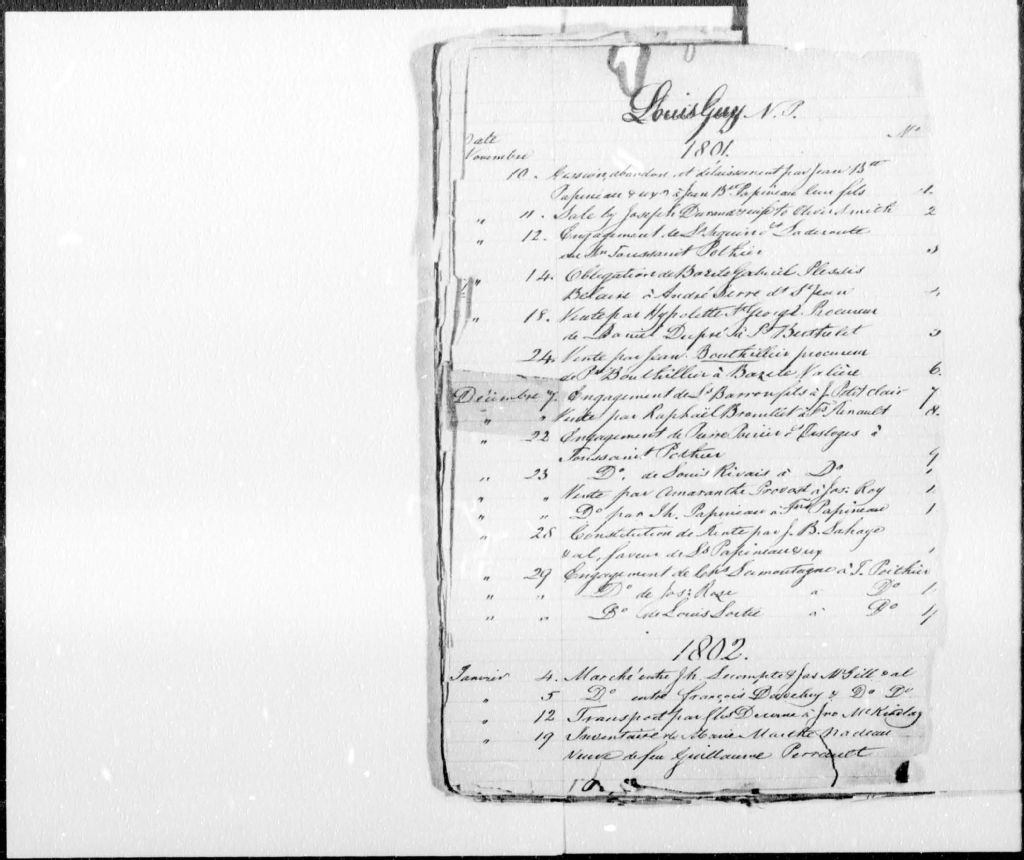 Louis Guy N.P.
Date No
Novembre 1801.
10. Cession, abandon et délaissement par Jean Bte
Papineau & uxr à Jean Bte Papineau leur fils 1.
" 11. Sale by Joseph Durand & wife to Oliver Smith 2
" 12. Engagement de dt Laderoute
au Sr Toussaint Pothier 3
" 14. Obligation de Bazile Gabriel Plessis
Belaire à André Serre dt St Jean 4
" 18. Vente par Hypolette St George Procureur
de Daniel Dupré à P. Berthelet 5
24. Vente par Jean Bouthillier procureur
de Pre Bouthillier à Bazile Valière 6.
Décembre 7. Engagement de Ls Barron fils à J. Petitclair 7
" " Vente par Raphaël Brouillet à Fs Renault 8.
" 22 Engagement de Pierre Poirier dt Desloges à
Toussaint Pothier 9
" 23 Do. de Louis Rivais à Do 1
" " Vente par Amaranthe Provost à Jos: Roy 1
" " Do par Jh. Papineau à Frs Papineau 1
" 28 Constitution de Rente par J. B. Sahago
& al, faveur de Ls Papineau & ux 1
" 29 Engagement de Chs Lamontagne à T. Pothier
" " Do de Jos: Roze à Do 1
" " Do de Louis Sortie à Do 1
1802.
Janvier 4. Marché entre Jh. Lecompte & Jas McGill & al
" 5 Do entre François Daveluy & Do Do
" 12 Transport par Chs Ducarne à Jno McKindlay
" 19 Inventaire de Marie Marthe Nadeau
Veuve de feu Guillaume Perrault